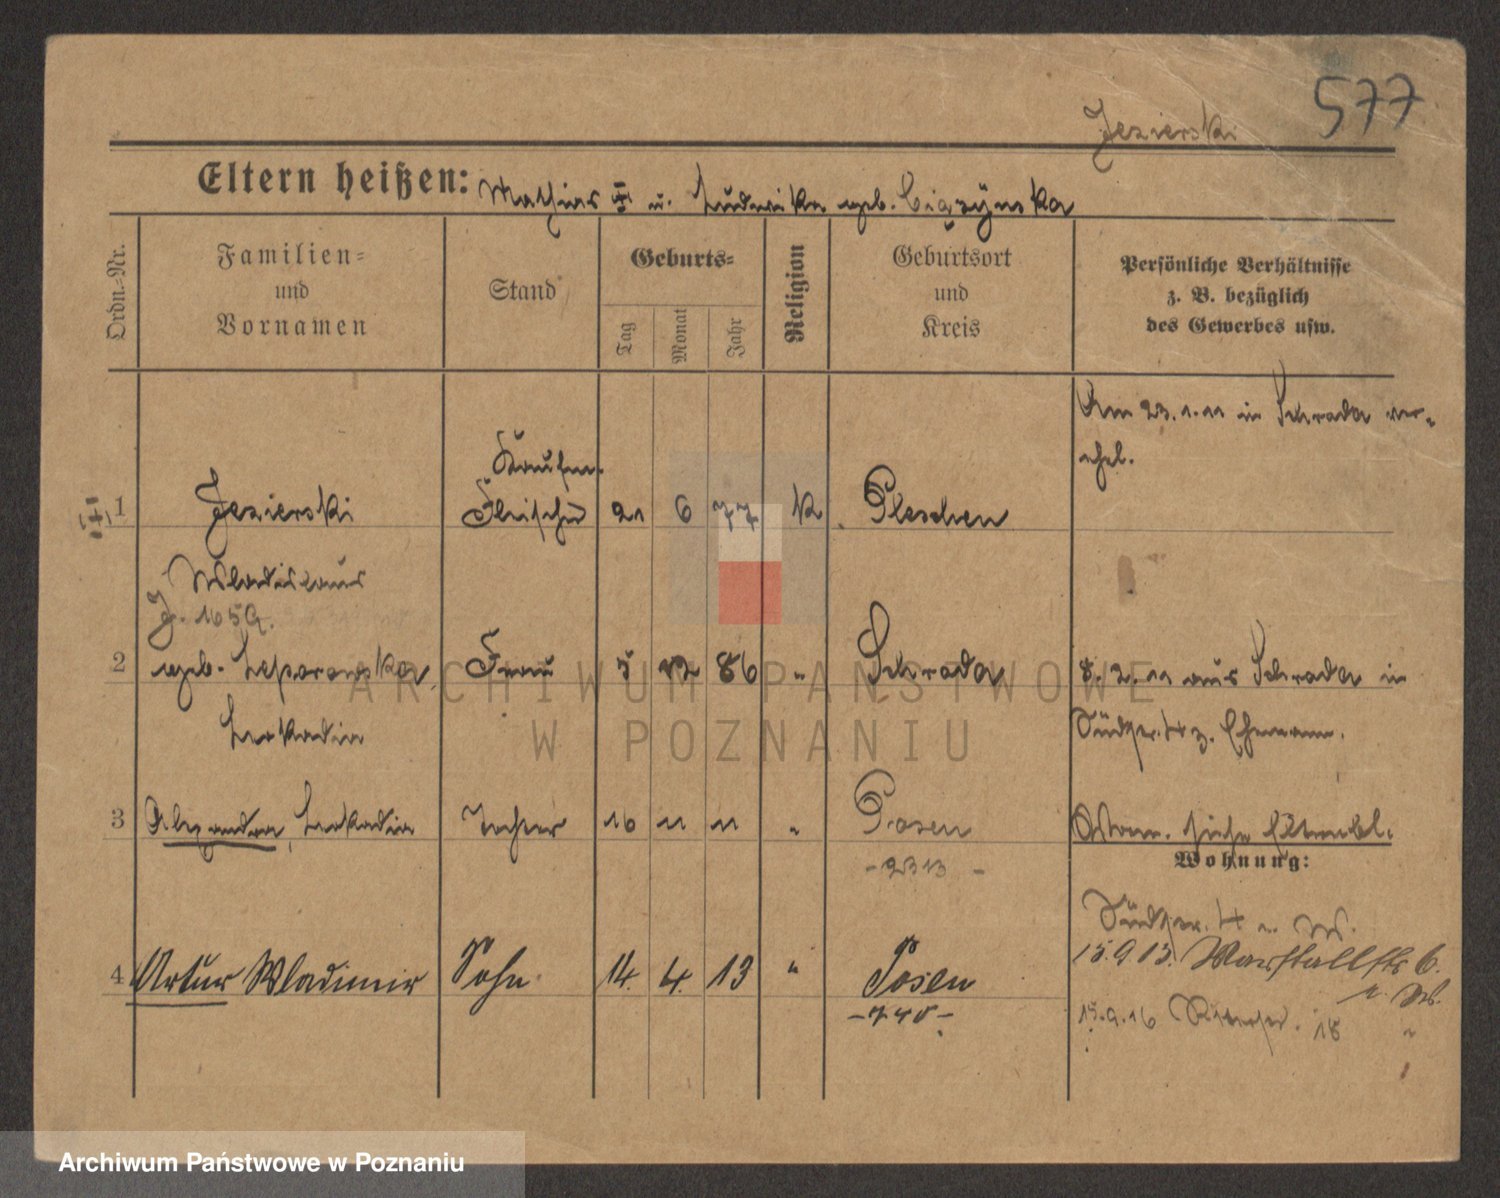 577
Jezierski
Eltern heißen: Mathias u. Ludwika geb.
Ordn.-Nr.
Familien-
und
Vornamen
Stand
Geburts-
Tag
Monat
Jahr
Religion
Geburtsort
und
Kreis
Persönliche Verhältnisse
z. B. bezüglich
des Gewerbes usw.
Am 23.1.11 in Schroda ver-
ehel.
Kaufm.
1 Jezierski Fleischer 21 6 77 K. Pleschen
Wladislaus
J. 1659.
2 geb. Leporowska Frau 5 12 86 " Schroda 8.2.11 aus Schroda in
Leokadia z. Ehemann.
3 Alexandra, Leokadia Tochter 16 11 11 " Posen siehe
Wohnung:
-2313-
4 Artur Wladimir Sohn 14. 4. 13 " Posen 15.9.13. Marstallstr 6.
-740-
15.9.16 18 "
ARCHIWUM PAŃSTWOWE
W POZNANIU
Archiwum Państwowe w Poznaniu